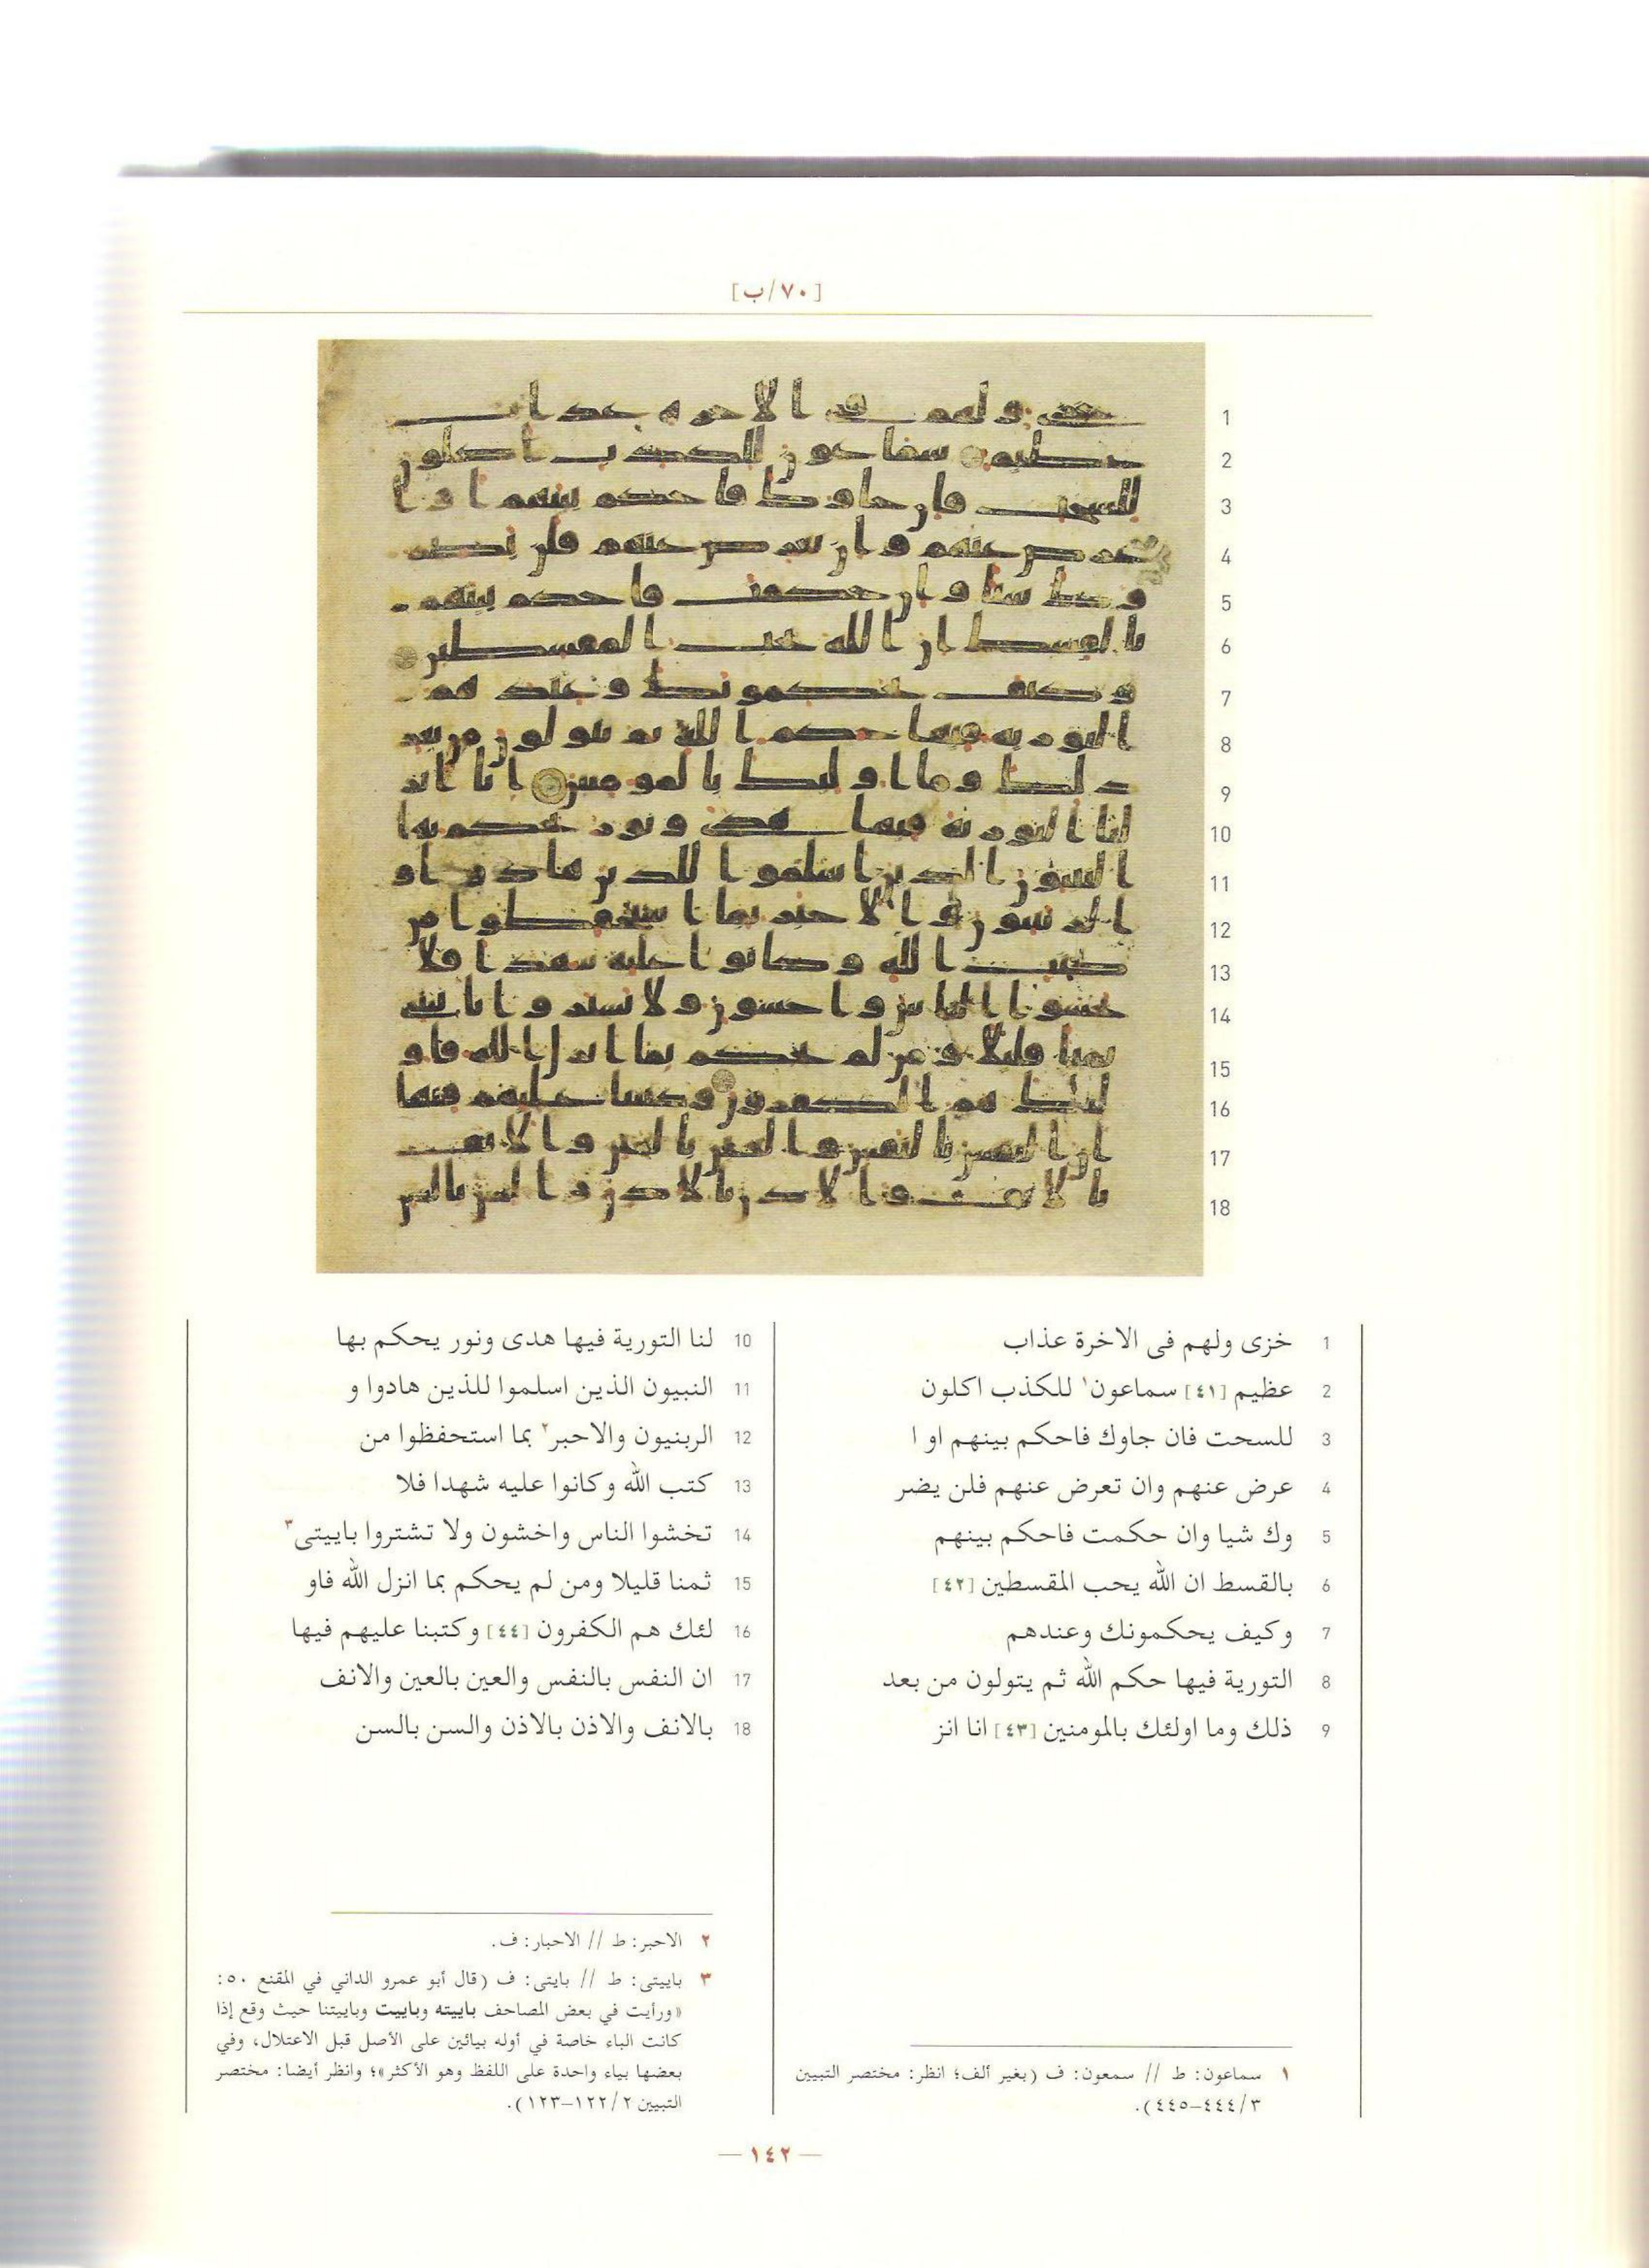 [٧٠/ب]
1 خزى ولهم فى الاخرة عذاب
2 عظيم [٤١] سماعون١ للكذب اكلون
3 للسحت فان جاوك فاحكم بينهم او ا
4 عرض عنهم وان تعرض عنهم فلن يضر
5 وك شيا وان حكمت فاحكم بينهم
6 بالقسط ان الله يحب المقسطين [٤٢]
7 وكيف يحكمونك وعندهم
8 التورية فيها حكم الله ثم يتولون من بعد
9 ذلك وما اولئك بالمومنين [٤٣] انا انز
10 لنا التورية فيها هدى ونور يحكم بها
11 النبيون الذين اسلموا للذين هادوا و
12 الربنيون والاحبر٢ بما استحفظوا من
13 كتب الله وكانوا عليه شهدا فلا
14 تخشوا الناس واخشون ولا تشتروا باييتى٣
15 ثمنا قليلا ومن لم يحكم بما انزل الله فاو
16 لئك هم الكفرون [٤٤] وكتبنا عليهم فيها
17 ان النفس بالنفس والعين بالعين والانف
18 بالانف والاذن بالاذن والسن بالسن
١ سماعون: ط // سمعون: ف (بغير ألف؛ انظر: مختصر التبيين
٣/٤٤٤–٤٤٥).
٢ الاحبر: ط // الاحبار: ف.
٣ باييتى: ط // بايتى: ف (قال أبو عمرو الداني في المقنع ٥٠:
«ورأيت في بعض المصاحف باييته وباييت وباييتنا حيث وقع إذا
كانت الباء خاصة في أوله بيائين على الأصل قبل الاعتلال، وفي
بعضها بياء واحدة على اللفظ وهو الأكثر»؛ وانظر أيضا: مختصر
التبيين ٢/١٢٢–١٢٣).
— ١٤٢ —